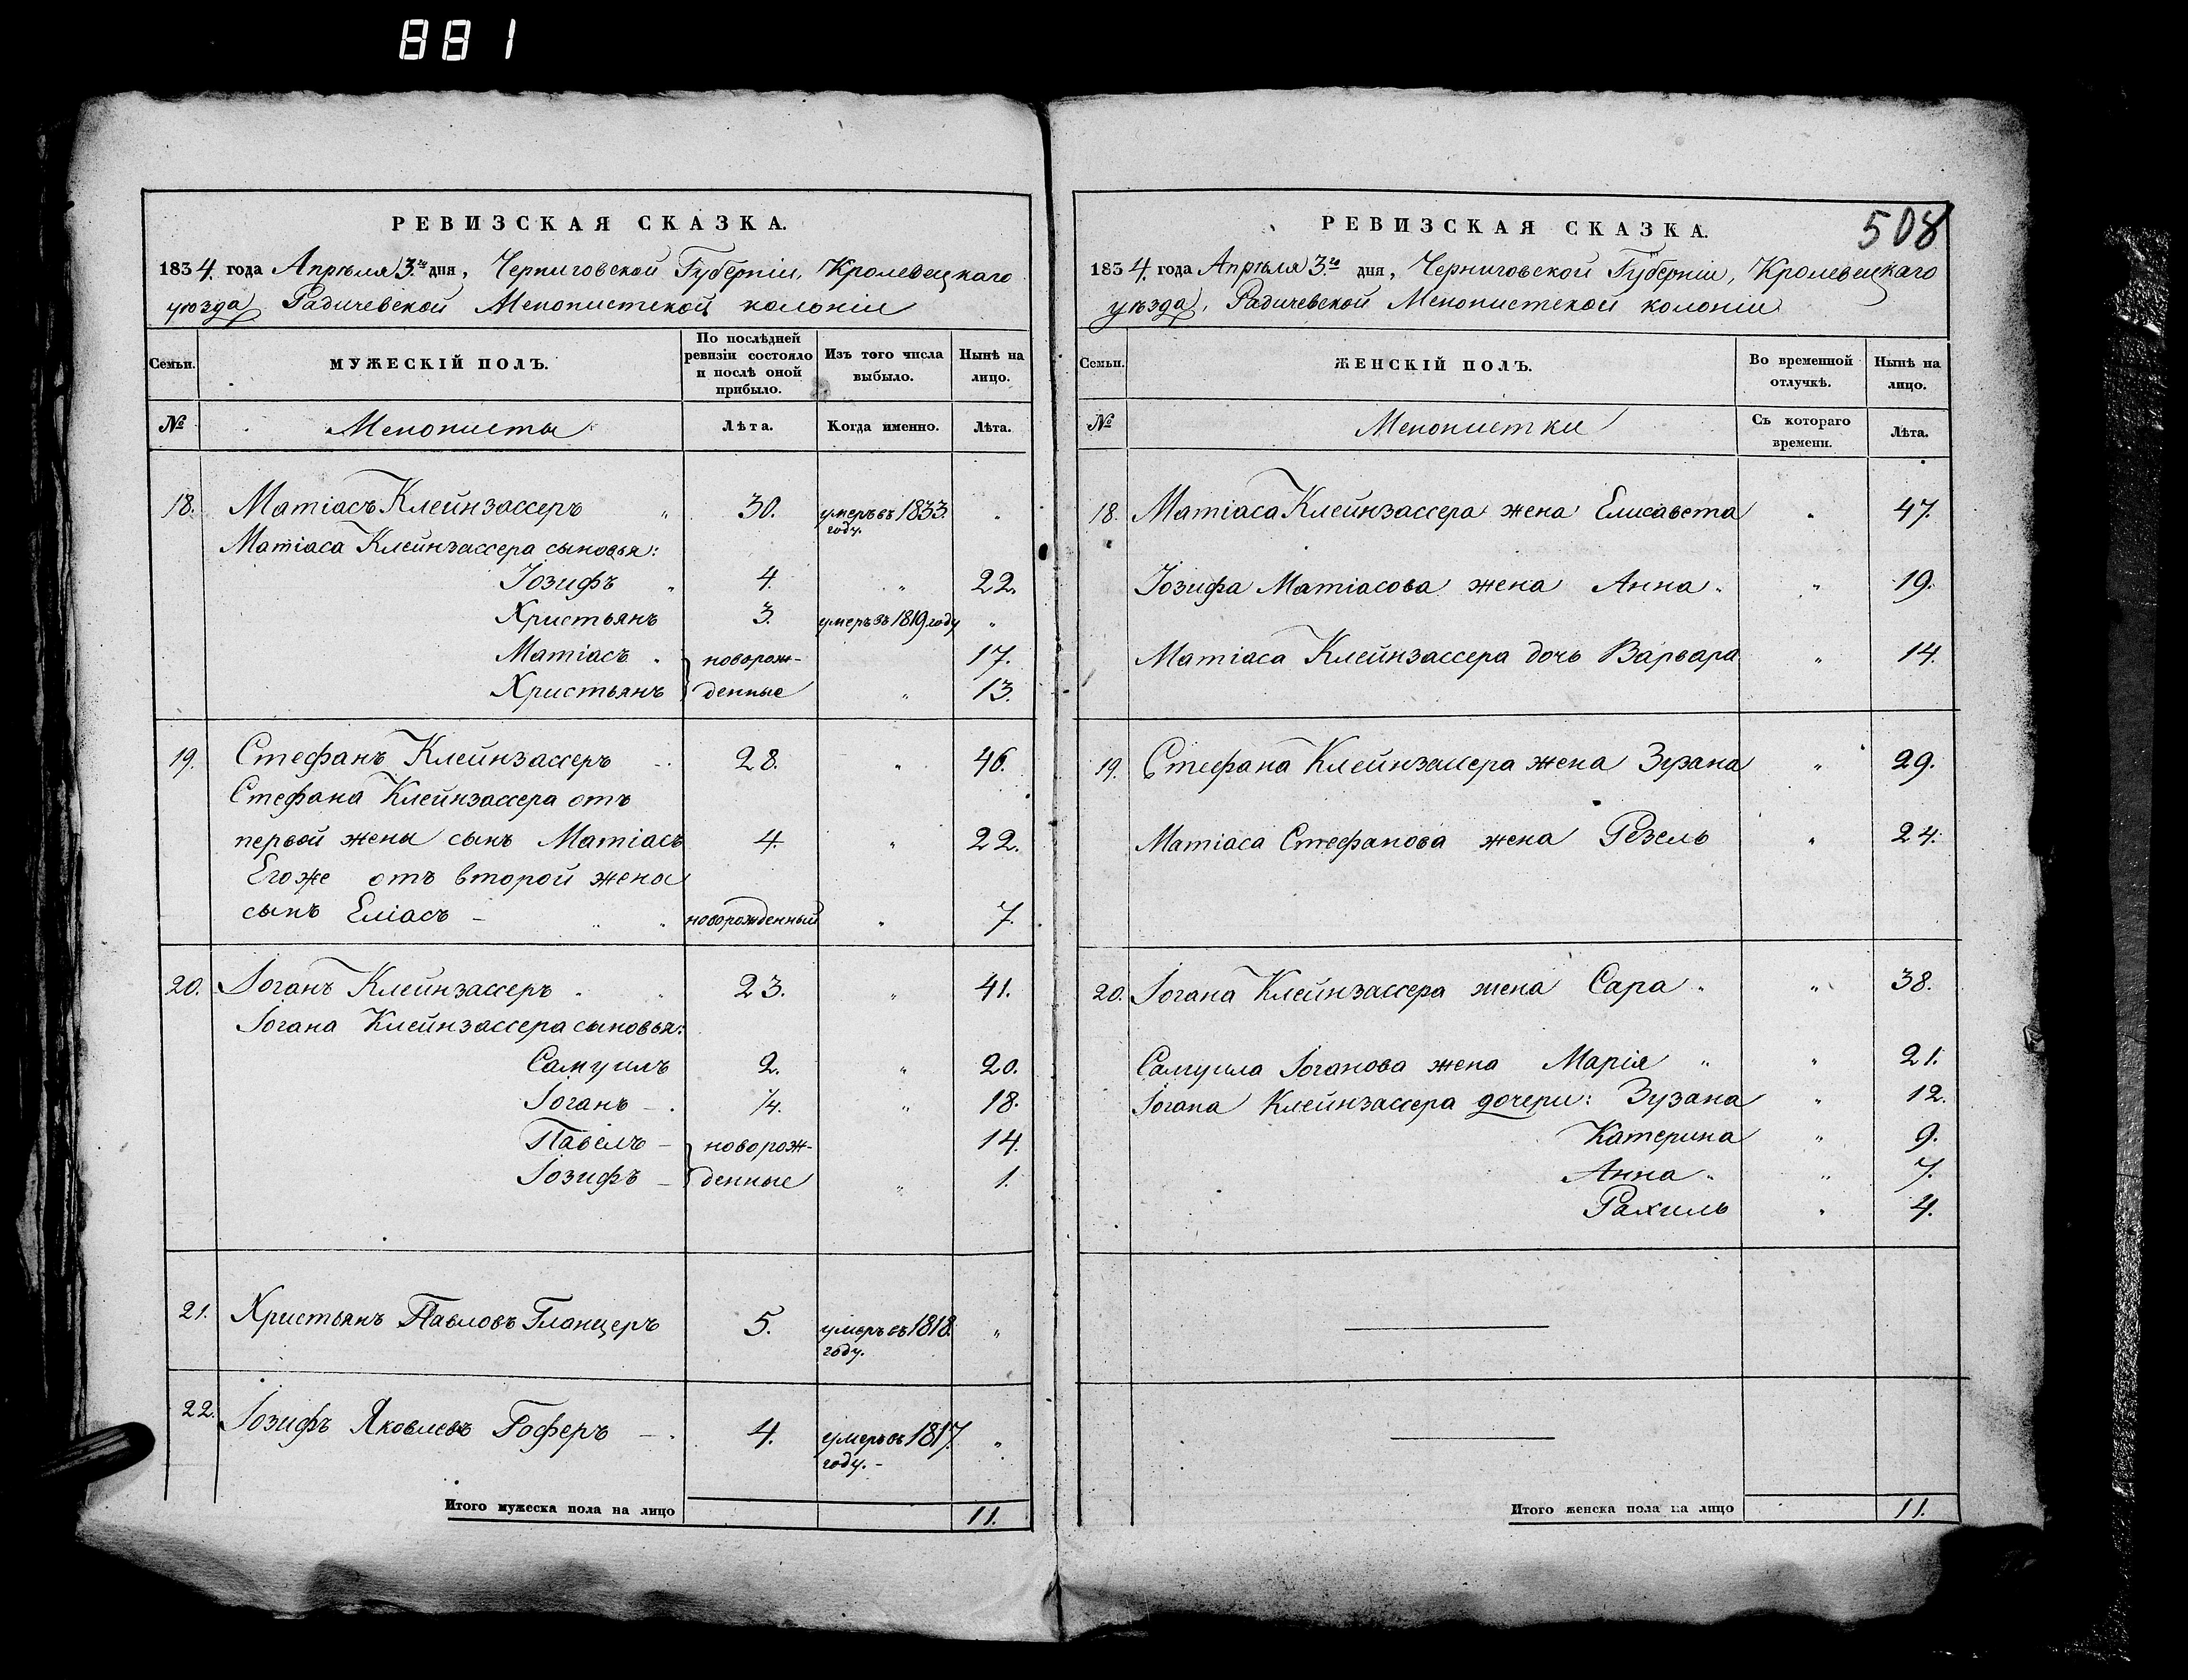 881
РЕВИЗСКАЯ СКАЗКА.
1834. года Апрѣля 3.го дня, Черниговской Губерніи, Кролевецкаго
уѣзда Радичевской Менонистской колоніи
Семьи. МУЖЕСКІЙ ПОЛЪ. По послѣдней ревизіи состояло и послѣ оной прибыло. Изъ того числа выбыло. Нынѣ на лицо.
№ Менонисты Лѣта. Когда именно. Лѣта.
18. Матіасъ Клейнзассеръ " 30. умеръ въ 1833. году. "
Матіаса Клейнзассера сыновья:
Іозифъ " 4. " 22.
Христьянъ 3. умеръ въ 1819 году "
Матіасъ " новорож- 17.
Христьянъ денные " 13.
19. Стефанъ Клейнзассеръ 28. " 46.
Стефана Клейнзассера отъ
первой жены сынъ Матіасъ 4. " 22.
Егоже отъ второй жены
сынъ Еліасъ – новорожденный " 7.
20. Іоганъ Клейнзассеръ " 23. " 41.
Іогана Клейнзассера сыновья:
Самуилъ 2. " 20.
Іоганъ – 1/4. " 18.
Павелъ – новорож- 14.
Іозифъ – денные " 1.
21. Христьянъ Павловъ Гланцеръ 5. умеръ въ 1818. году. "
22. Іозифъ Яковлевъ Гоферъ – 4. умеръ въ 1817. году. – "
Итого мужеска пола на лицо 11.
508
РЕВИЗСКАЯ СКАЗКА.
1834. года Апрѣля 3.го дня, Черниговской Губерніи, Кролевецкаго
уѣзда, Радичевской Менонистской колоніи
Семьи. ЖЕНСКІЙ ПОЛЪ. Во временной отлучкѣ. Нынѣ на лицо.
№ Менонистки Съ котораго времени. Лѣта.
18. Матіаса Клейнзассера жена Елисавета " 47.
Іозифа Матіасова жена Анна " " 19.
Матіаса Клейнзассера дочь Варвара " 14.
19. Стефана Клейнзассера жена Зузана " 29.
Матіаса Стефанова жена Резель " 24.
20. Іогана Клейнзассера жена Сара " " 38.
Самуила Іоганова жена Марія " " 21.
Іогана Клейнзассера дочери: Зузана " 12.
Катерина " 9.
Анна " " 7.
Рахиль " 4.
Итого женска пола на лицо 11.